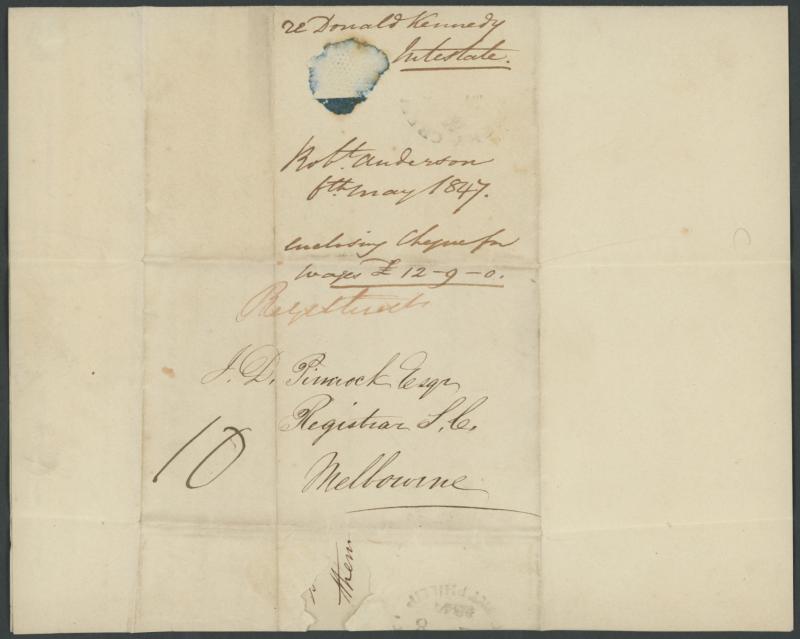 re Donald Kennedy
Intestate.
Robt. Anderson
6th May 1847.
enclosing Cheque for
wages £ 12-9-0.
Registered
J. D. Pinnock Esqr
Registrar S. C.
Melbourne
10
PHILLIP
8